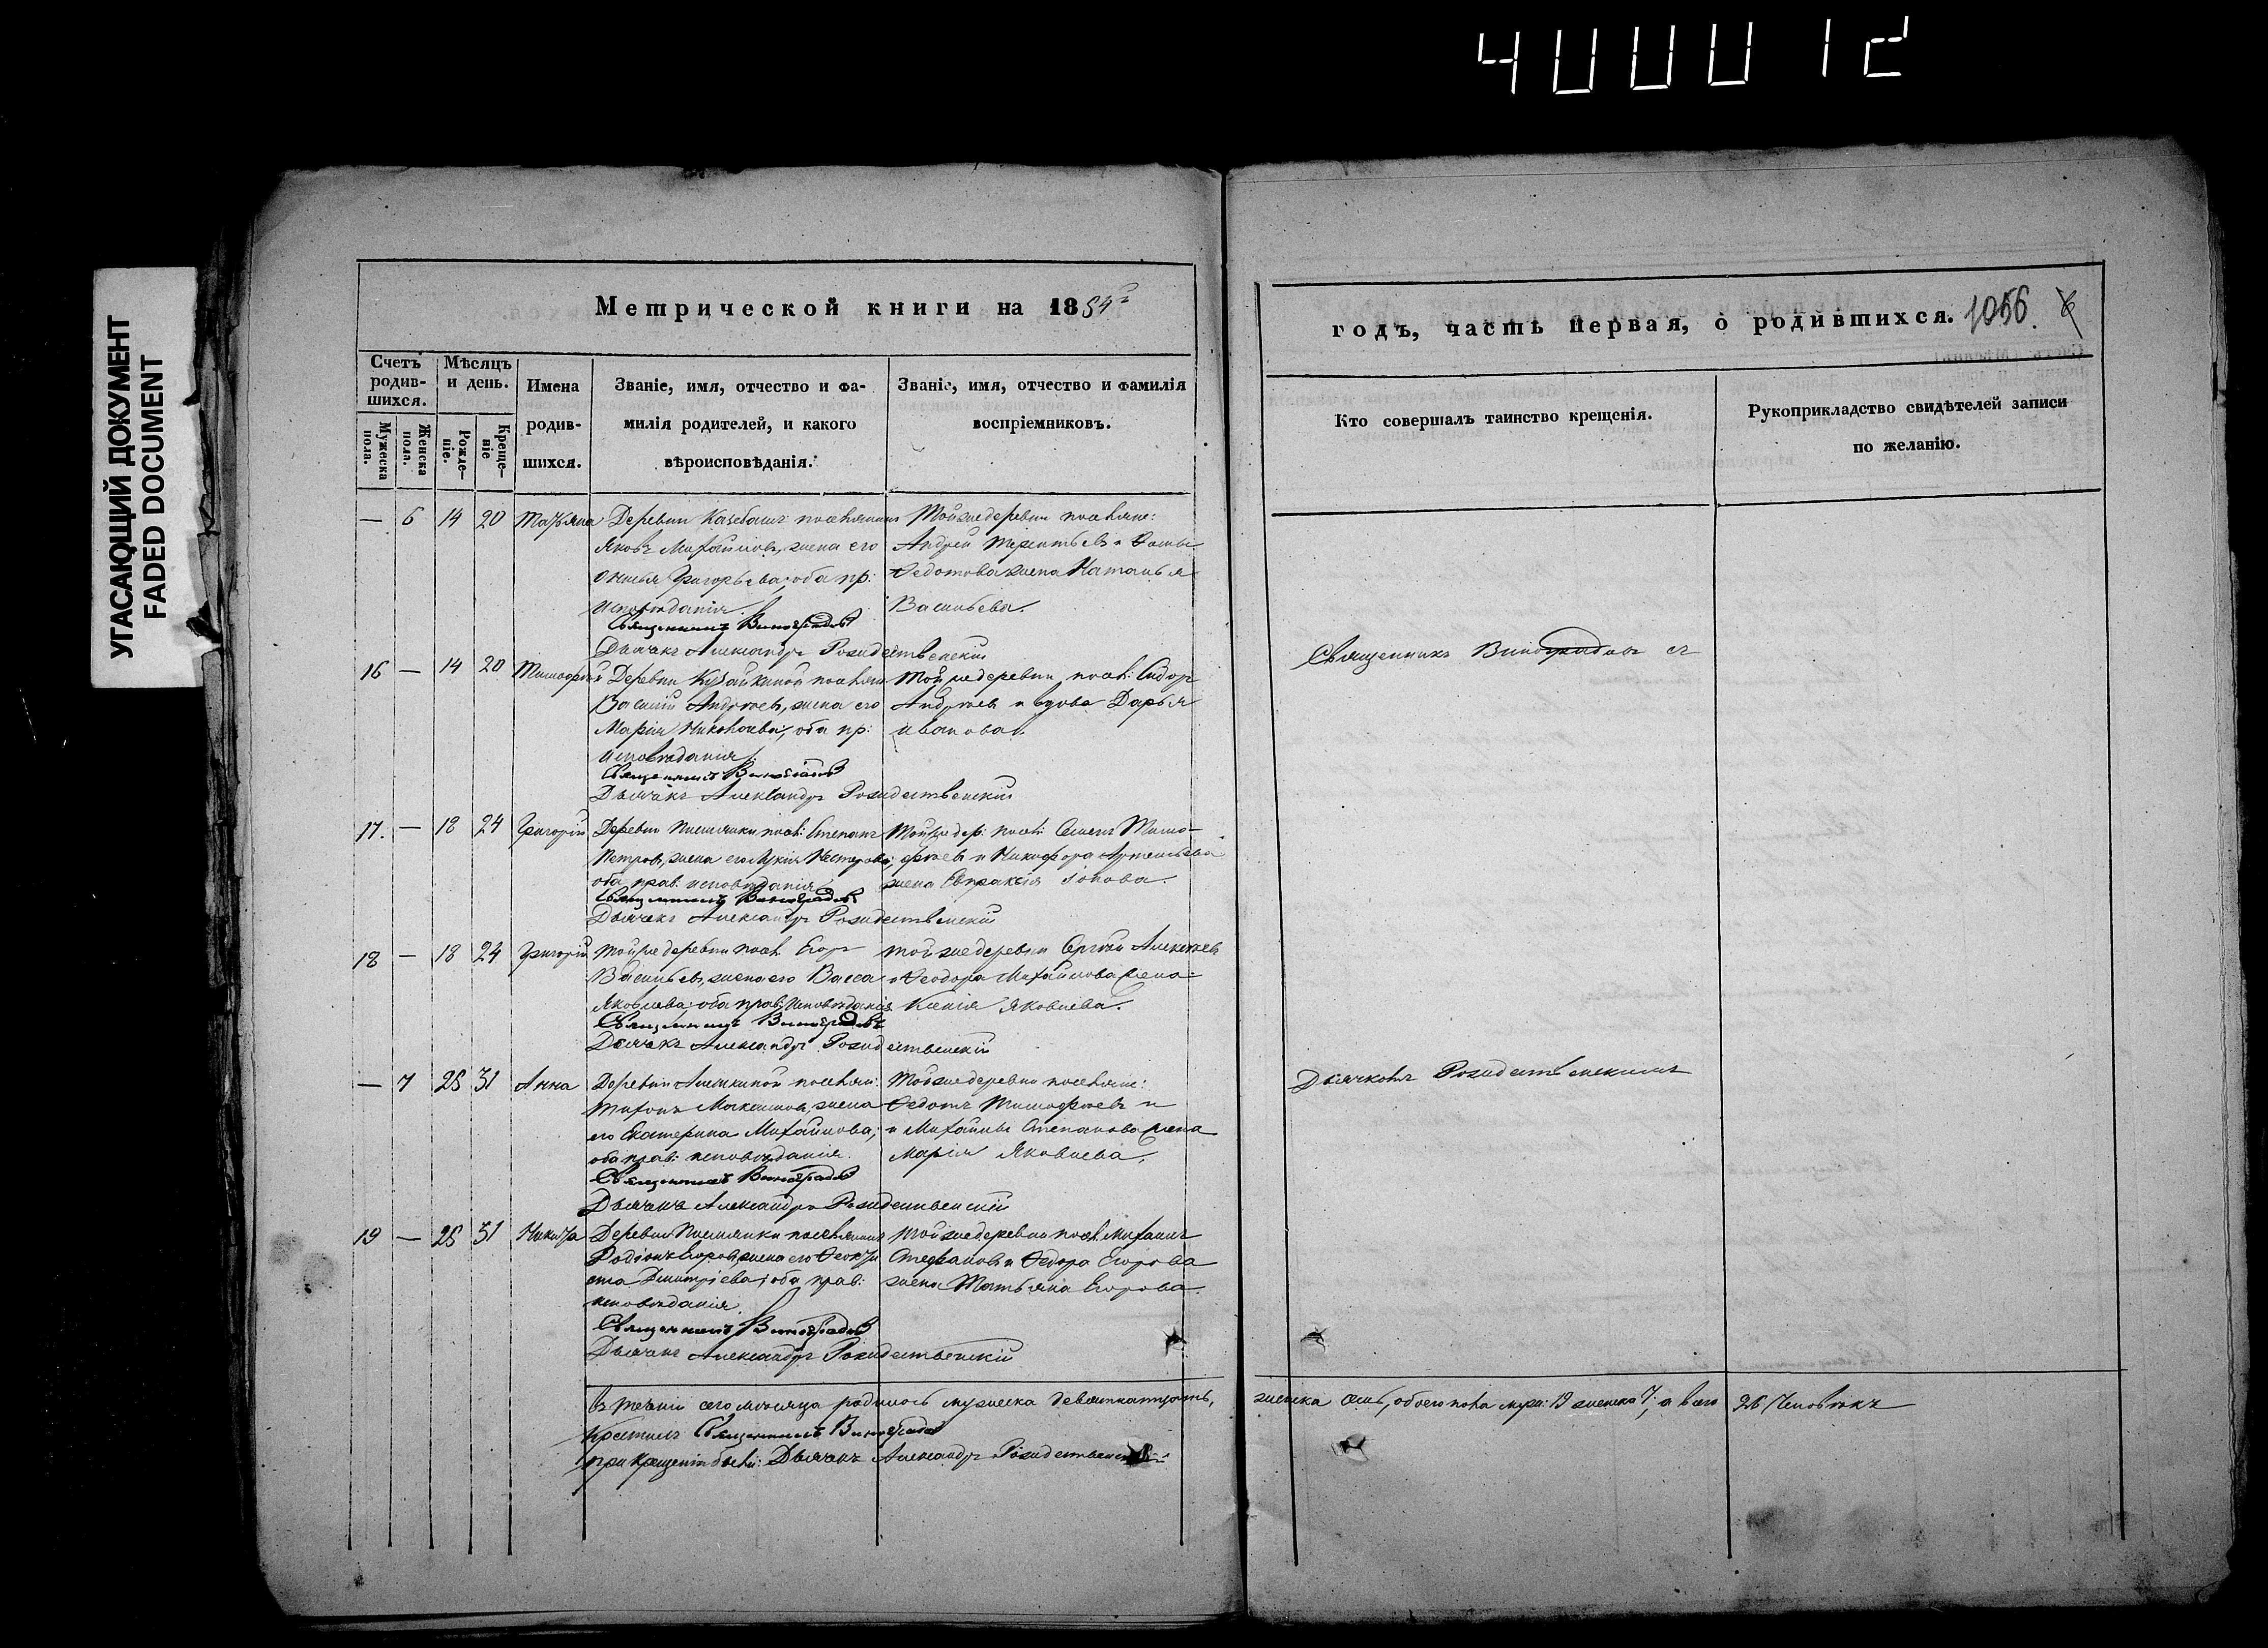 400012
УГАСАЮЩИЙ ДОКУМЕНТ
FADED DOCUMENT
Метрической книги на 1854
годъ, часть первая, о родившихся. 1056.
Счетъ родив-шихся.
Мужеска пола.
Женска пола.
Мѣсяцъ и день.
Рожде-ніе.
Креще-ніе
Имена родив-шихся.
Званіе, имя, отчество и фа-
милія родителей, и какого
вѣроисповѣданія.
Званіе, имя, отчество и фамилія
воспріемниковъ.
Кто совершалъ таинство крещенія.
Рукоприкладство свидѣтелей записи
по желанію.
— 6 14 20 Татьяна Деревни Тойже деревни
Яковъ Михайловъ, жена его Андрей Терентьевъ и
Григорьева, оба пр: Ѳедотова жена Наталья
исповѣданія. Васильева.
Священникъ Виноградовъ
Дьячекъ Александръ Рождественскій
Священникъ Виноградовъ съ
16 — 14 20 Тимофей Деревни Тойже деревни Сидоръ
Василій Андреевъ, жена его Андреевъ и вдова Дарья
Марія Николаева, оба пр: Иванова.
исповѣданія.
Священникъ Виноградовъ
Дьячекъ Александръ Рождественскій
17. — 18 24 Григорій Деревни Степанъ Тойже дер: Семенъ Тимо-
Петровъ, жена его Нестерова, феевъ и Никифора Артемьева
оба прав: исповѣданія жена Евпраксія
Священникъ Виноградовъ
Дьячекъ Александръ Рождественскій
18 — 18 24 Григорій Тойже деревни Егоръ Тойже деревни Сергѣй Алексѣевъ
Васильевъ, жена его Васса и Ѳеодора Михайлова жена
Яковлева, оба прав: исповѣданія Ксенія Яковлева.
Священникъ Виноградовъ
Дьячекъ Александръ Рождественскій
— 7 25 31 Анна Деревни Тойже деревни
Тихонъ Максимовъ, жена Ѳедотъ Тимофеевъ и
его Екатерина Михайлова; и Михайлы Степанова жена
оба прав: исповѣданія. Марія Яковлева.
Священникъ Виноградовъ
Дьячекъ Александръ Рождественскій
Дьячкомъ Рождественскимъ
19 — 25 31 Никита Деревни Тойже деревни Михаилъ
Родіонъ Егоровъ, жена его Ѳеокти Степановъ и Ѳедора Егорова
ста Дмитріева, оба прав: жена Татьяна Егорова.
исповѣданія.
Священникъ Виноградовъ
Дьячекъ Александръ Рождественскій
Въ теченіи сего мѣсяца родилось мужеска девятнатцать, женска семь, обоего пола муж: 19 женска 7, а всего 26 Человѣкъ
Крестилъ Священникъ Виноградовъ
при крещеніи былъ: Дьячекъ Александръ Рождественскій